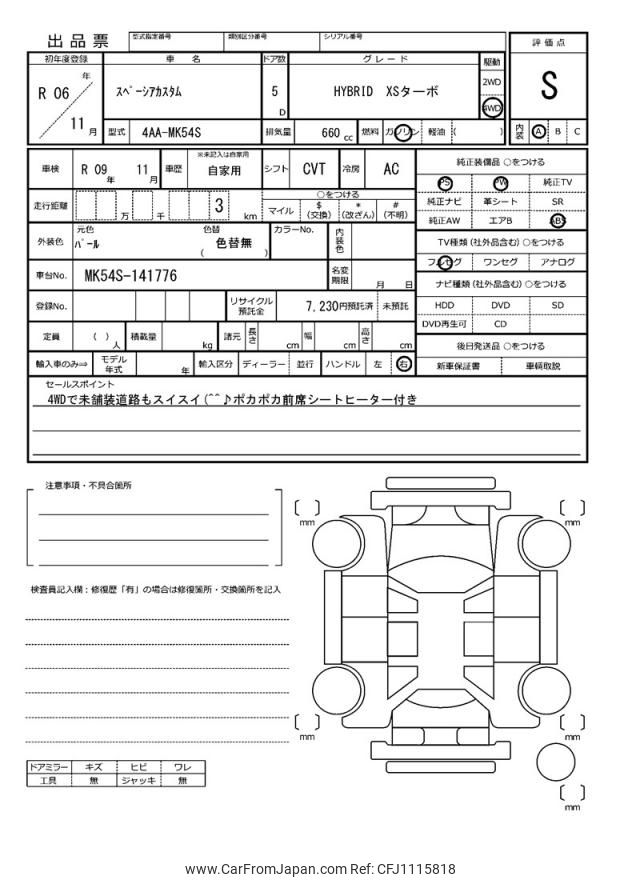 出品票 型式指定番号 類別区分番号 シリアル番号 評価点
初年度登録 車名 ドア数 グレード 駆動
R 06 年 11 月 スペーシアカスタム 5 D HYBRID XSターボ 2WD 4WD S
型式 4AA-MK54S 排気量 660 cc 燃料 ガソリン 軽油 ( ) 内装 A B C
車検 R 09 年 11 月 車歴 ※未記入は自家用 自家用 シフト CVT 冷房 AC 純正装備品 ○をつける
PS PW 純正TV
走行距離 万 千 3 km ○をつける
マイル $(交換) *(改ざん) #(不明) 純正ナビ 革シート SR
純正AW エアB ABS
外装色 元色 パール 色替 色替無 ( ) カラーNo. 内装色 TV種類 (社外品含む) ○をつける
フルセグ ワンセグ アナログ
車台No. MK54S-141776 名変期限 月 日 ナビ種類 (社外品含む) ○をつける
登録No. リサイクル預託金 7,230円預託済 未預託 HDD DVD SD
DVD再生可 CD
定員 ( ) 人 積載量 kg 諸元 長さ cm 幅 cm 高さ cm 後日発送品 ○をつける
輸入車のみ⇒ モデル年式 年 輸入区分 ディーラー 並行 ハンドル 左 右 新車保証書 車輌取説
セールスポイント
4WDで未舗装道路もスイスイ(^^♪ポカポカ前席シートヒーター付き
注意事項・不具合箇所
[ ] mm [ ] mm
検査員記入欄：修復歴「有」の場合は修復箇所・交換箇所を記入
[ ] mm [ ] mm
ドアミラー キズ ヒビ ワレ
工具 無 ジャッキ 無
[ ] mm
www.CarFromJapan.com Ref: CFJ1115818